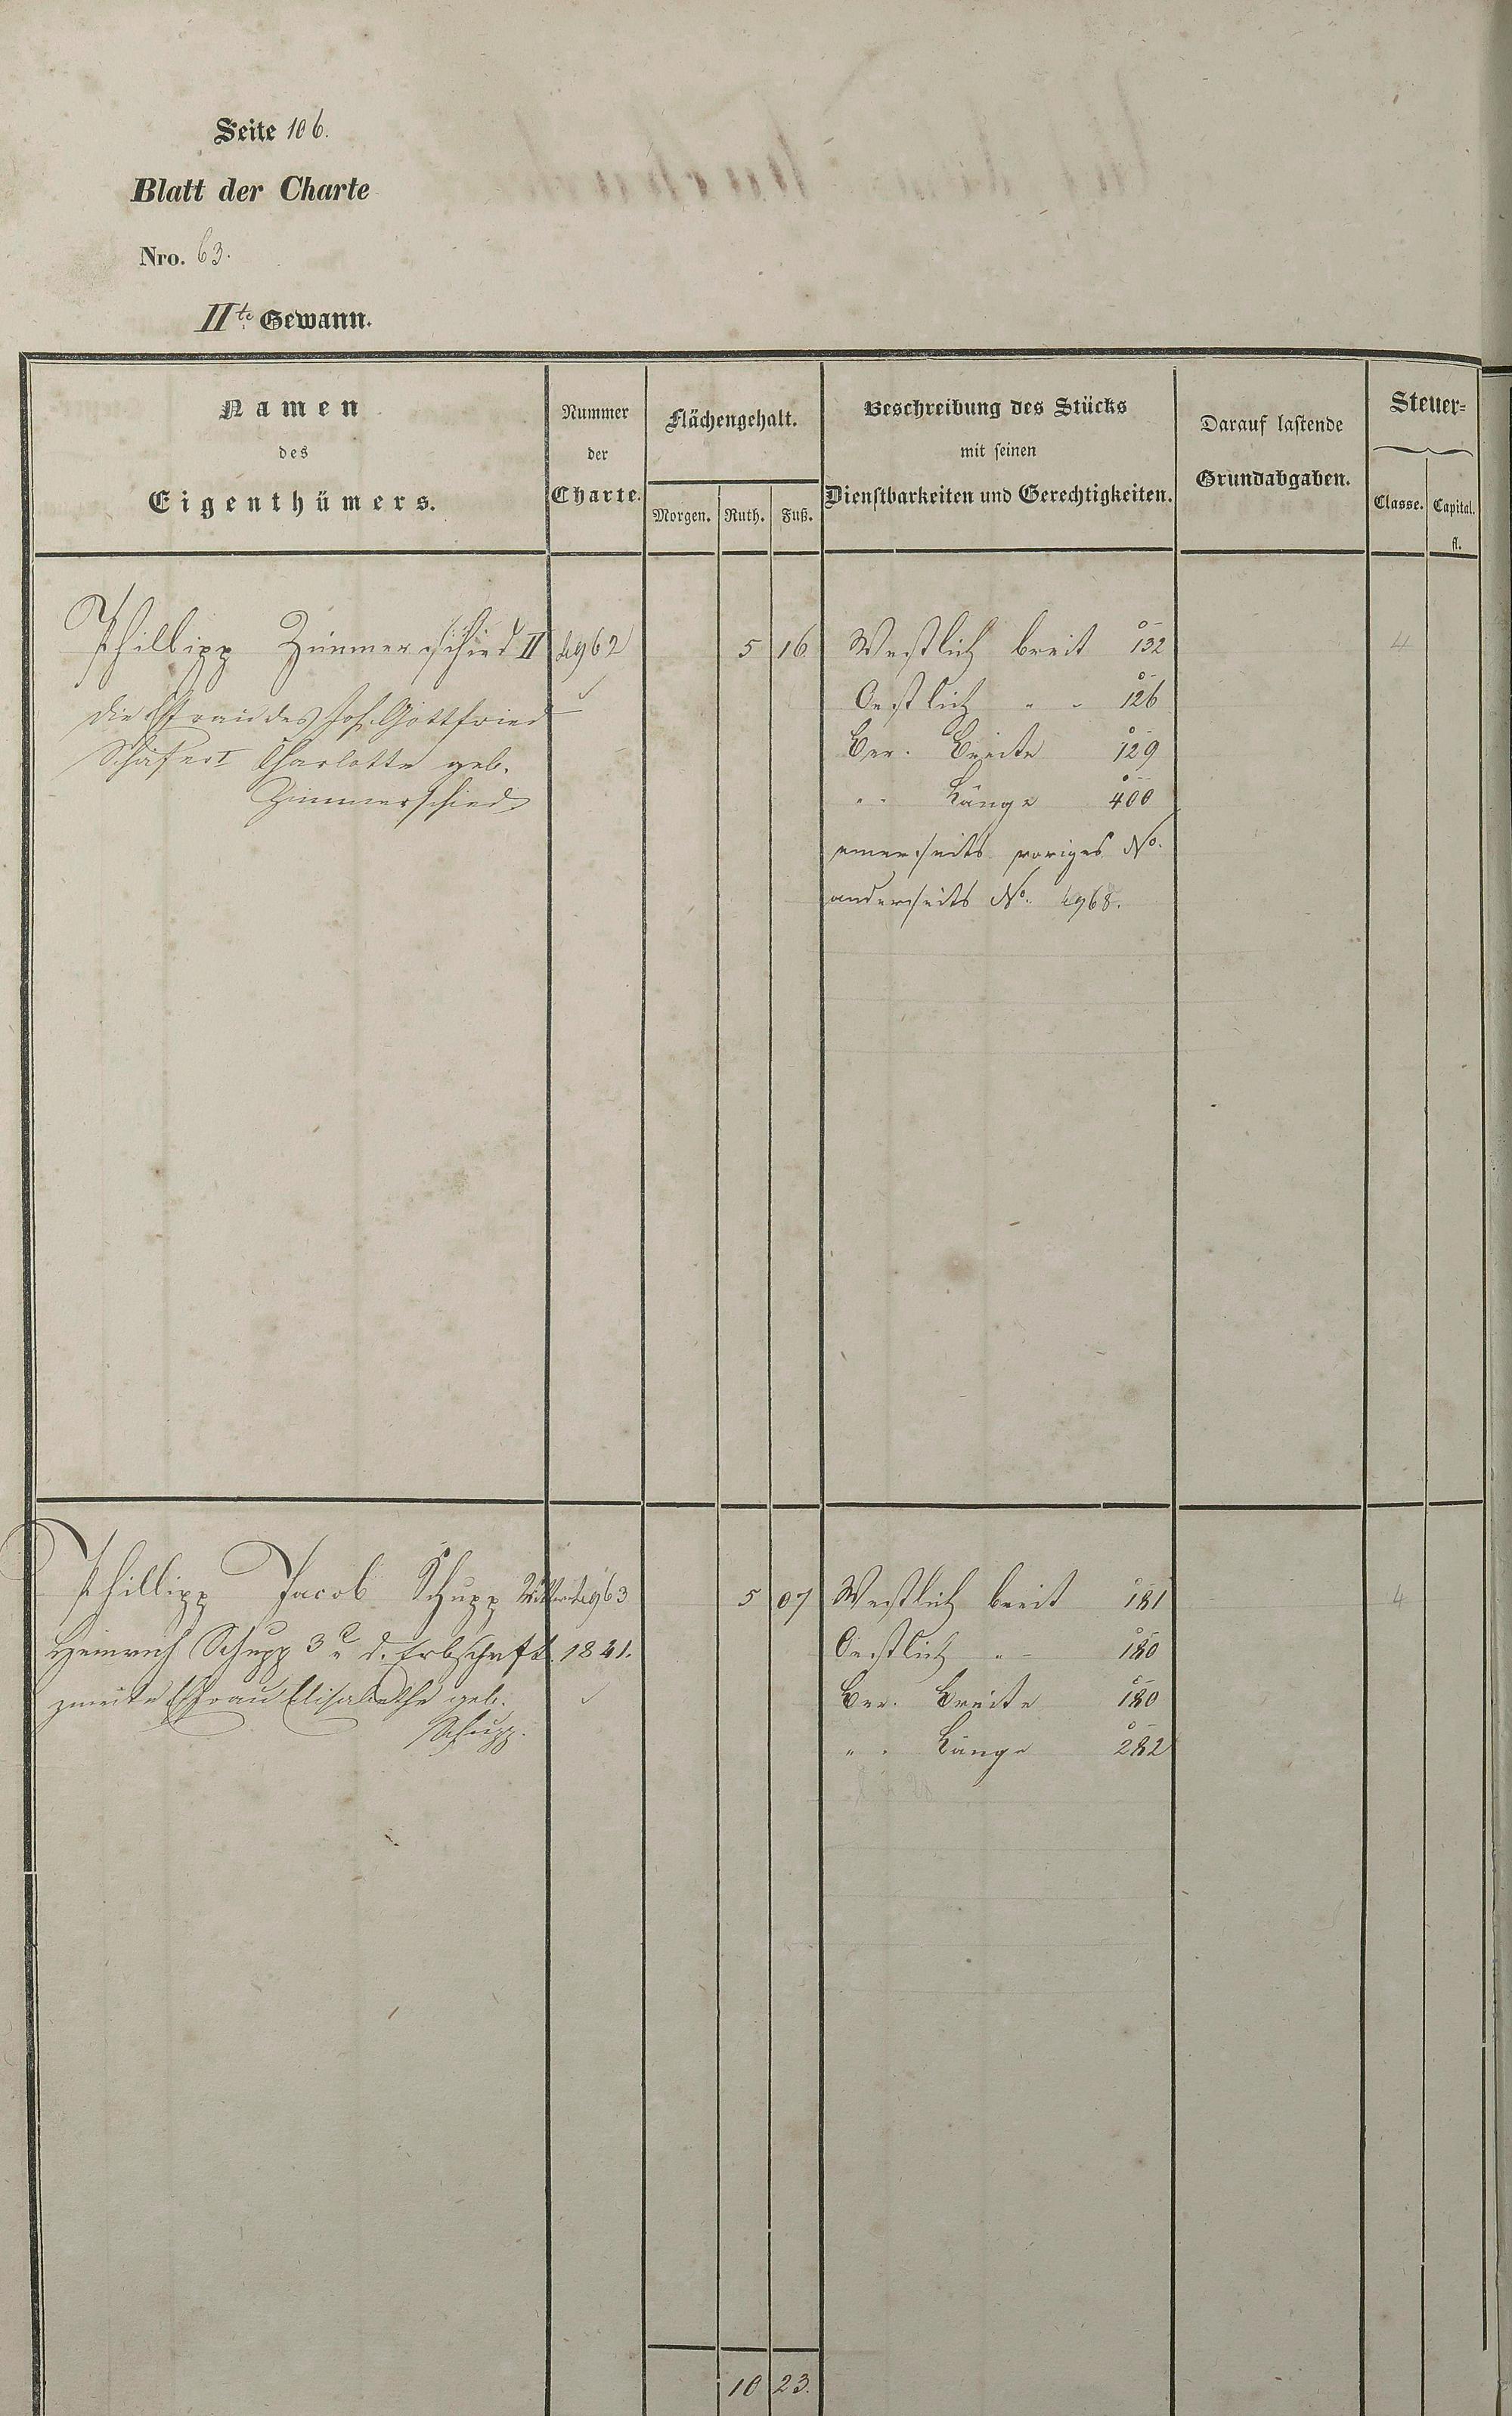 Seite 106.
Blatt der Charte
Nro. 63.
IIte Gewann.
Namen
des
Eigenthümers.
Nummer
der
Charte.
Flächengehalt.
Morgen. Ruth. Fuß.
Beschreibung des Stücks
mit seinen
Dienstbarkeiten und Gerechtigkeiten.
Darauf lastende
Grundabgaben.
Steuer-
Classe. Capital.
fl.
Phillipp Zimmerschied II 4962 5 16 Westlich breit 132 4
die Efrau des Joh. Gottfried
Oestlich " " 126
Schäfer I Charlotte geb.
Ber. Breite 129
Zimmerschied
" " Länge 400
einerseits voriges No.
anderseits No. 4968.
Phillipp Jacob Schupp 4963 5 07 Westlich breit 181 4
Heinrich Schupp 3r u. d. Erbschaft 1841. Oestlich " " 180
zweite Efrau Elisabethe geb. Ber. Breite 180
Schupp.
" " Länge 282
10 23.